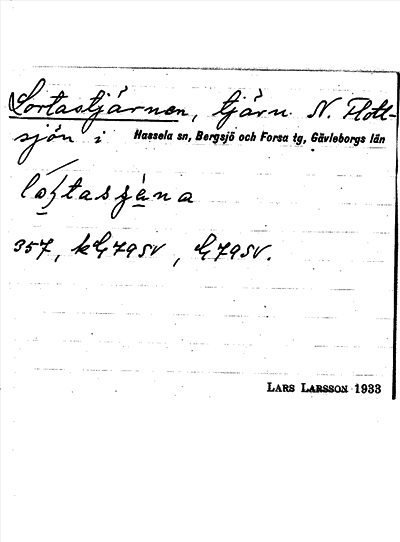 Lortastjärnen, tjärn N. Flott-
sjön i Hassela sn, Bergsjö och Forsa tg, Gävleborgs län
357, kG79SV, G79SV.
LARS LARSSON 1933